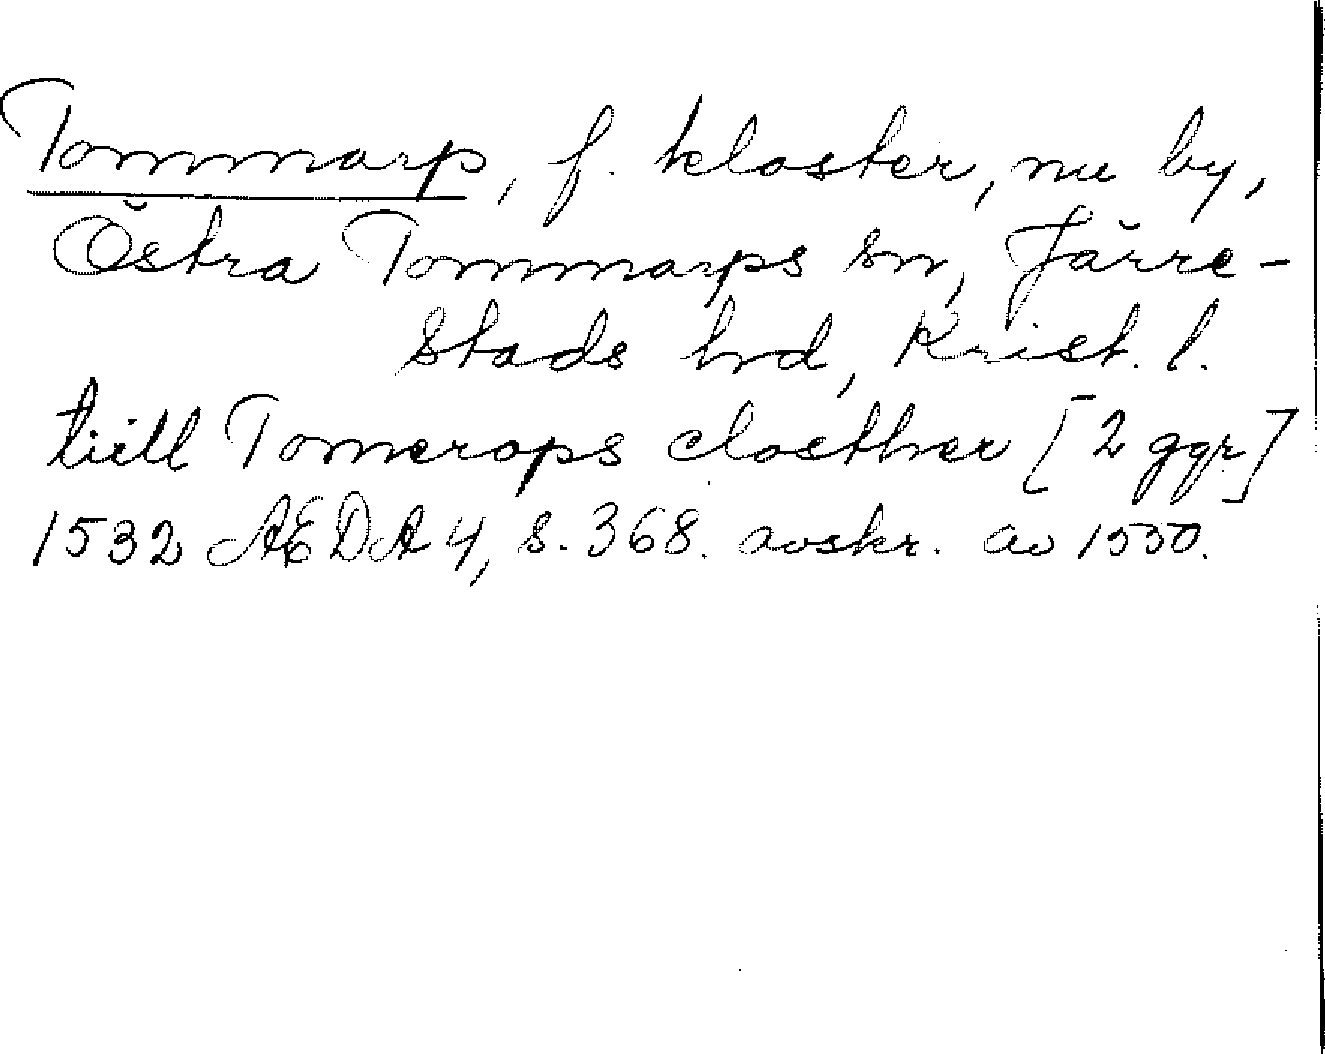 Tommarp, f. kloster, nu by,
Östra Tommarps sn, Järre-
stads hd, Krist. l.
tiill Tomerops closther [2 ggr]
1532 AEDA 4, s. 368. avskr. av 1550.